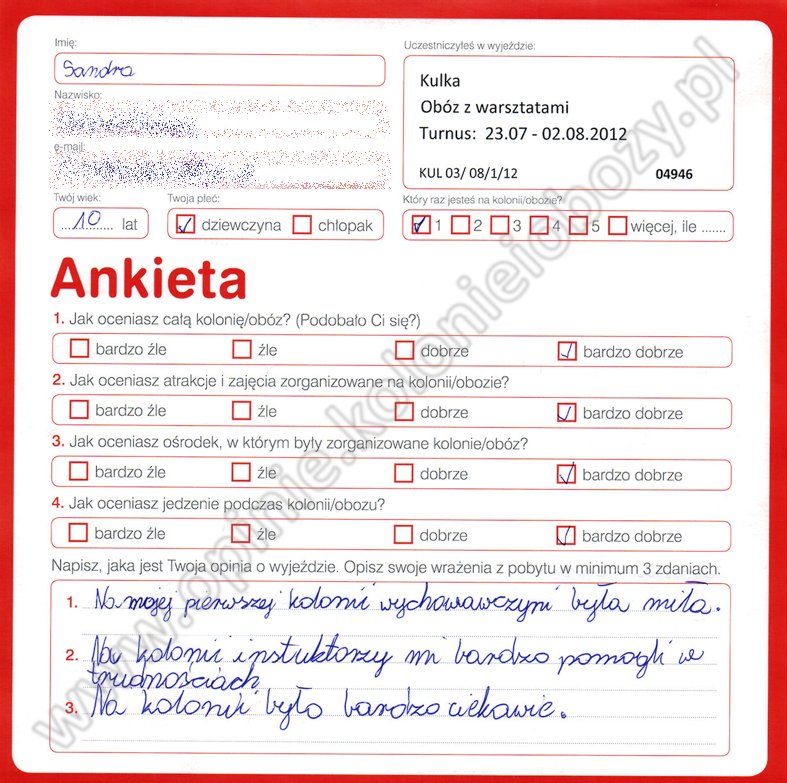 Imię:
Sandra
Uczestniczyłeś w wyjeździe:
Kulka
Obóz z warsztatami
Turnus: 23.07 - 02.08.2012
KUL 03/ 08/1/12 04946
Nazwisko:
e-mail:
Twój wiek:
10 lat
Twoja płeć:
dziewczyna chłopak
Który raz jesteś na kolonii/obozie?
1 2 3 4 5 więcej, ile .......
Ankieta
1. Jak oceniasz całą kolonię/obóz? (Podobało Ci się?)
bardzo źle źle dobrze bardzo dobrze
2. Jak oceniasz atrakcje i zajęcia zorganizowane na kolonii/obozie?
bardzo źle źle dobrze bardzo dobrze
3. Jak oceniasz ośrodek, w którym były zorganizowane kolonie/obóz?
bardzo źle źle dobrze bardzo dobrze
4. Jak oceniasz jedzenie podczas kolonii/obozu?
bardzo źle źle dobrze bardzo dobrze
Napisz, jaka jest Twoja opinia o wyjeździe. Opisz swoje wrażenia z pobytu w minimum 3 zdaniach.
1. Na mojej pierwszej kolonii wychowawczyni była miła.
2. Na kolonii instuktorzy mi bardzo pomogli w
trudnościach
3. Na kolonii było bardzo ciekawie.
www.opinie.kolonieiobozy.pl